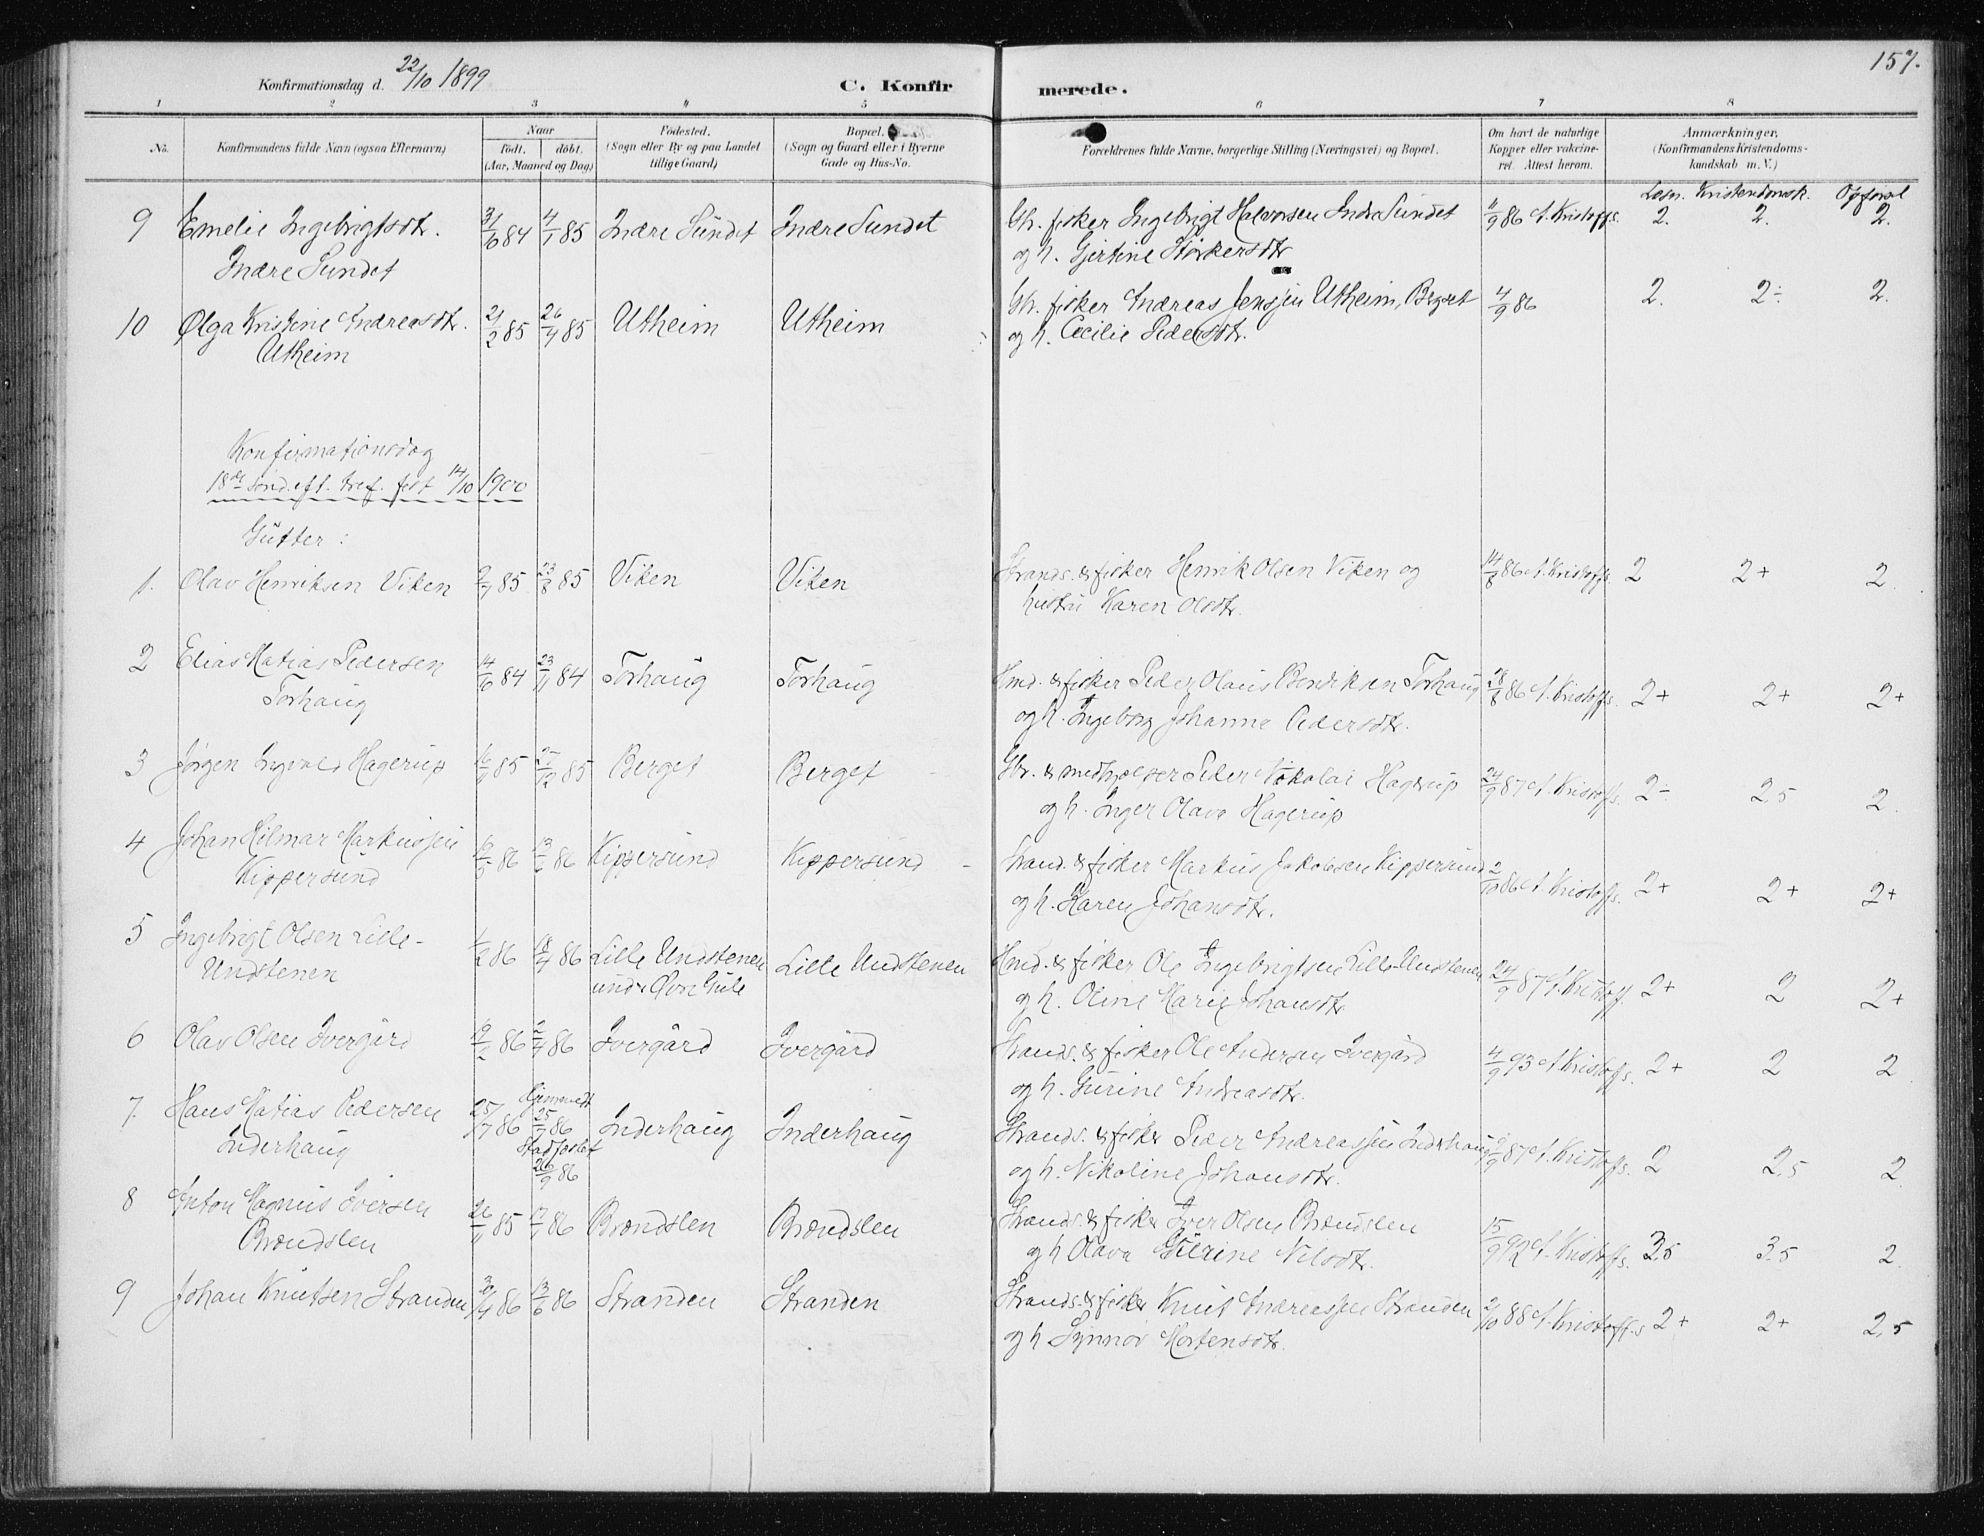 157.
Konfirmationsdag d. 22/10 1899 C. Konfirmerede.
1 2 3 4 5 6 7 8
No. Konfirmandens fulde Navn (ogsaa Efternavn) Naar født. døbt. (Aar, Maaned og Dag) Fødested. (Sogn eller By og paa Landet tillige Gaard) Bopæl. (Sogn og Gaard eller i Byerne Gade og Hus-No. Forældrenes fulde Navne, borgerlige Stilling (Næringsvei) og Bopæl. Om havt de naturlige Kopper eller vakcineret. Attest herom. Anmærkninger. (Konfirmandens Kristendomskundskab m. V.)
Læsn. Kristendomsk. Opførsel
9 Emelie Ingebrigtsdt. 84 4/1 85 Indre Sundet Indre Sundet Gbr. fisker Ingebrigt Halvorsen Indre Sundet 86 A. Kristoffs. 2. 2. 2.
Indre Sundet og h. Gjertine Størkersdtr
10 Olga Kristine Andreasdt. 21/2 85 26/4 85 Utheim Utheim Gbr. fisker Andreas Jenssen Utheim, 4/9 86 2. 2÷ 2.
Utheim og h. Cecilie Pedersdtr.
Konfirmationsdag
18de sønd. eft. tref. fest 14/10 1900
Gutter:
1. Olav Henriksen Viken 85 23/8 85 Viken Viken Strands. & fisker Henrik Olsen Viken og 14/8 86 A. Kristoffs. 2 2+ 2.
hustru Karen Olsdtr.
2 Elias Matias Pedersen 14/10 84 23/11 84 Torhaug Torhaug Hmd. & fisker Peder Olaus Bendiksen Torhaug 28/8 86 A. Kristoffs. 2+ 2+ 2+
Torhaug og h. Ingeborg Johanne Pedersdtr.
3 Jørgen Hagerup 85 85 Berget Berget Gbr. & medhjælper Peder Nikolai Hagerup 24/9 87 A. Kristoffs. 2÷ 2.5 2.
og h. Inger Olava Hagerup
4 Johan Hilmar Markussen 86 13/6 86 Kippersund Kippersund Strand. & fisker Markus Jakobsen Kippersund 86 A. Kristoffs. 2+ 2+ 2+
Kippersund og h. Karen Johansdtr.
5 Ingebrigt Olsen Lille- 86 18/4 86 Lille Undstenen Lille Undstenen Hmd. & fisker Ole Ingebrigtsen Lille-Undstenen 24/9 87 A. Kristoff. 2+ 2 2+
Undstenen og h. Oline Marie Johansdtr.
6 Olav Olsen Ivergård 86 2/4 86 Ivergård Ivergård Strands. & fisker Ole Andersen Ivergård 4/9 93 A. Kristoffs. 2+ 2 2
og h. Gurine Andreasdtr.
7. Hans Matias Pedersen 25/7 86 hjemmedt. 25/7 86 Inderhaug Inderhaug Strands. & fisker Peder Andreassen Inderhaug 87 A. Kristoffs. 2 2.5 2
Inderhaug Stadfæstet 26/9 86 og h. Nikoline Johansdtr.
8 Anton Magnus Iversen 85 86 Brændslen Brændslen Strands. & fisker Iver Olsen Brændslen 15/9 92 A. Kristoffs. 3.5 3.5 2
Brændslen og h Olava Nilsdtr.
9 Johan Knutsen Stranden 86 13/6 86 Stranden Stranden Strands. & fisker Knut Andreassen Stranden 2/10 88 A. Kristoffs 2+ 2+ 2.5
og h Synnøv Mortensdtr.